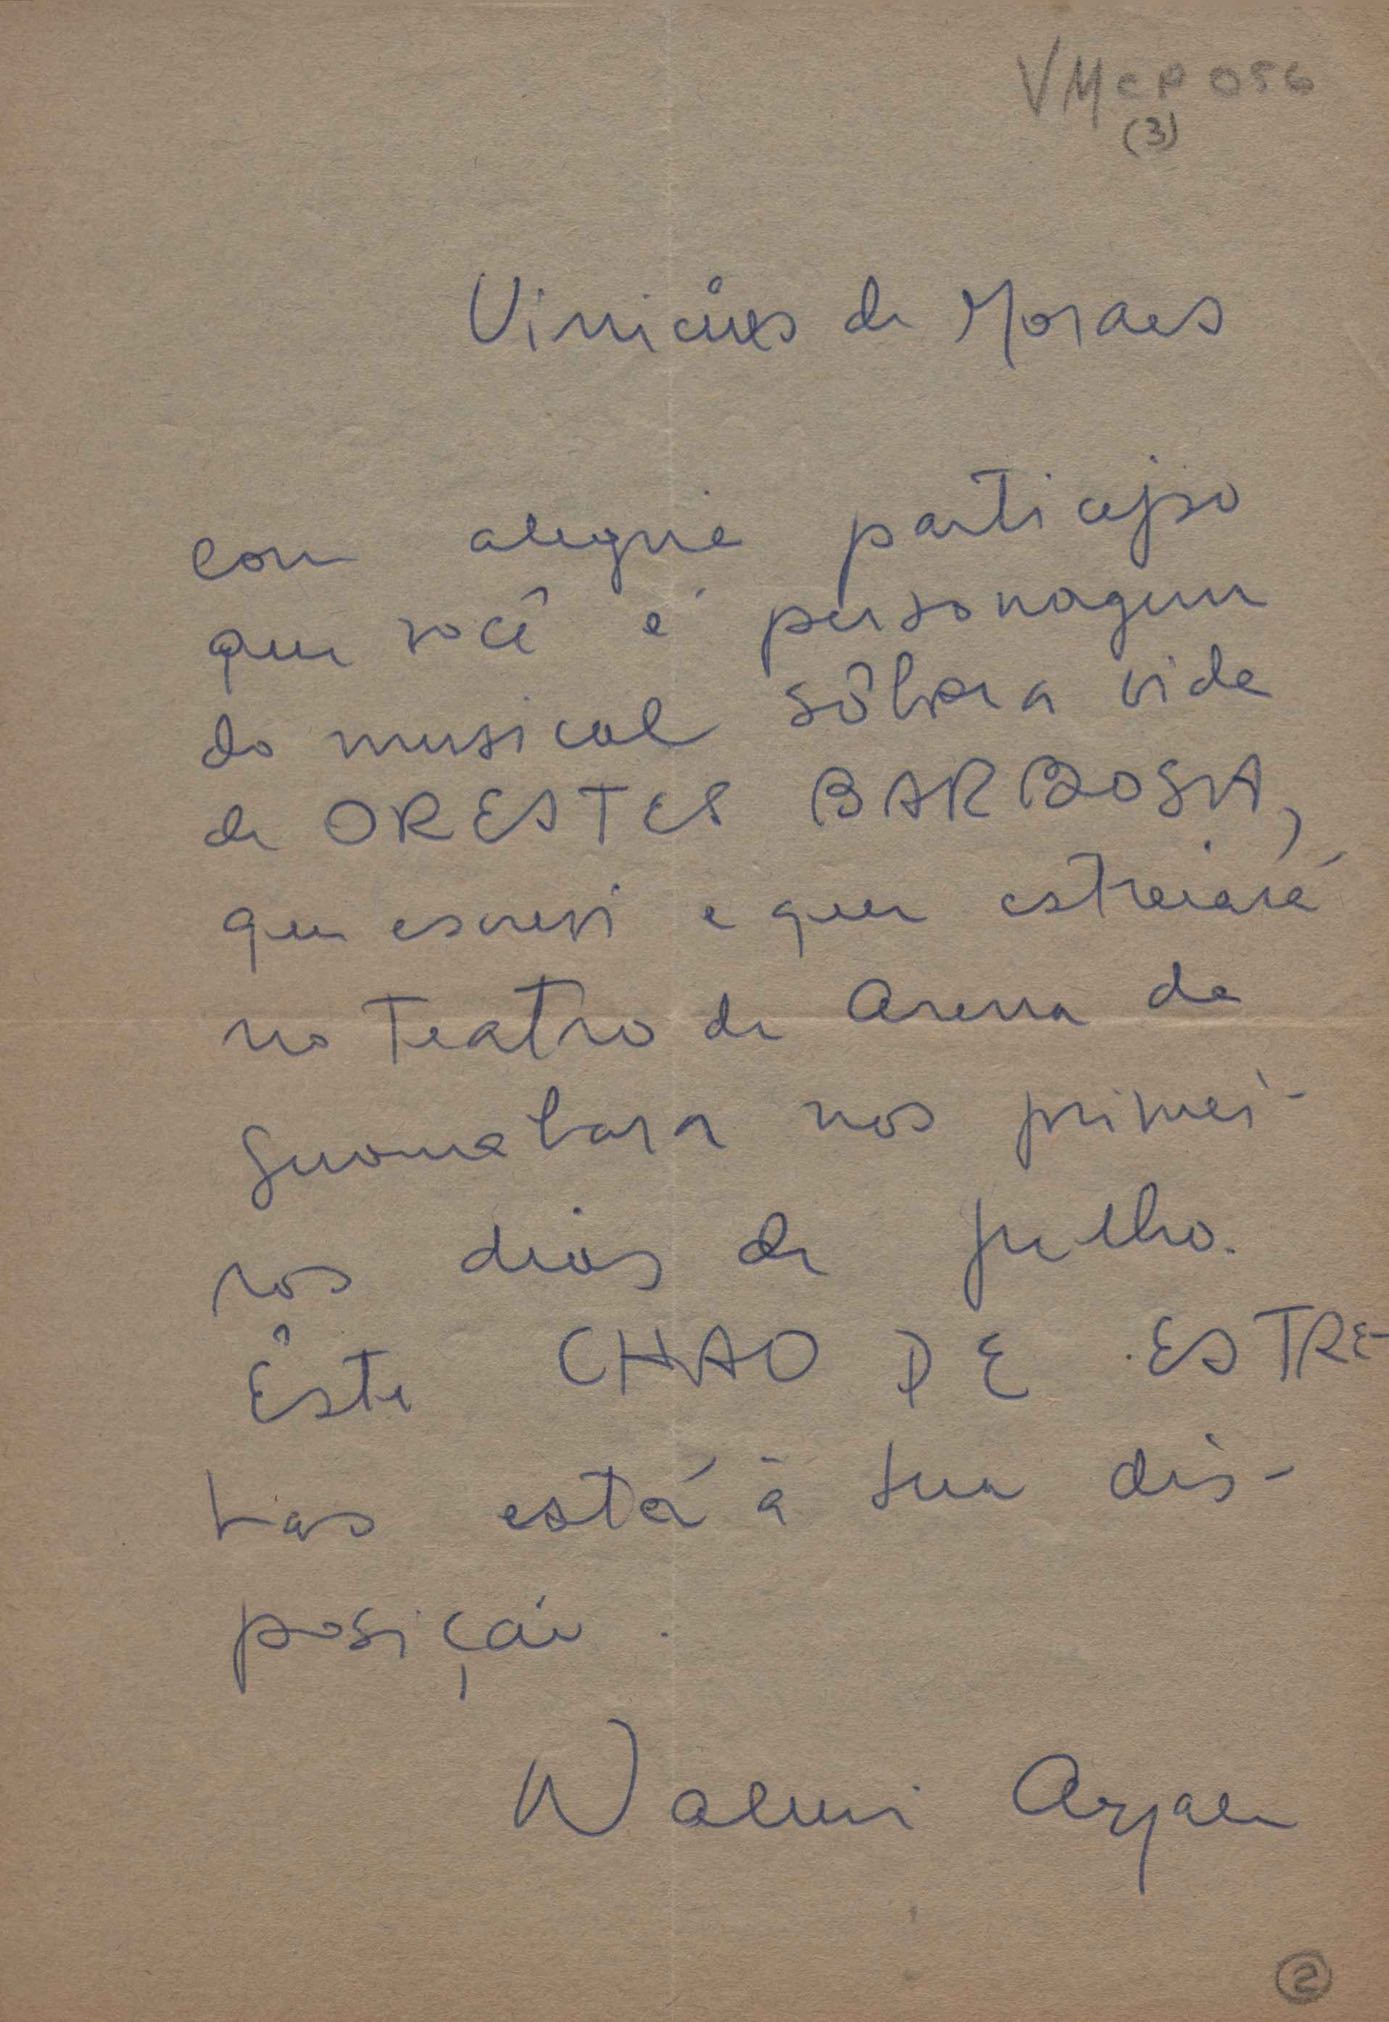 VMcP 056
(3)
Vinicius de Moraes
com alegria participo
que você é personagem
do musical sôbre a vida
de ORESTES BARBOSA,
que escrevi e que estreiará
no Teatro de Arena da
Guanabara nos primei-
ros dias de julho.
Êste CHAO DE ESTRE-
las está à sua dis-
posição.
Walmir Ayala
2